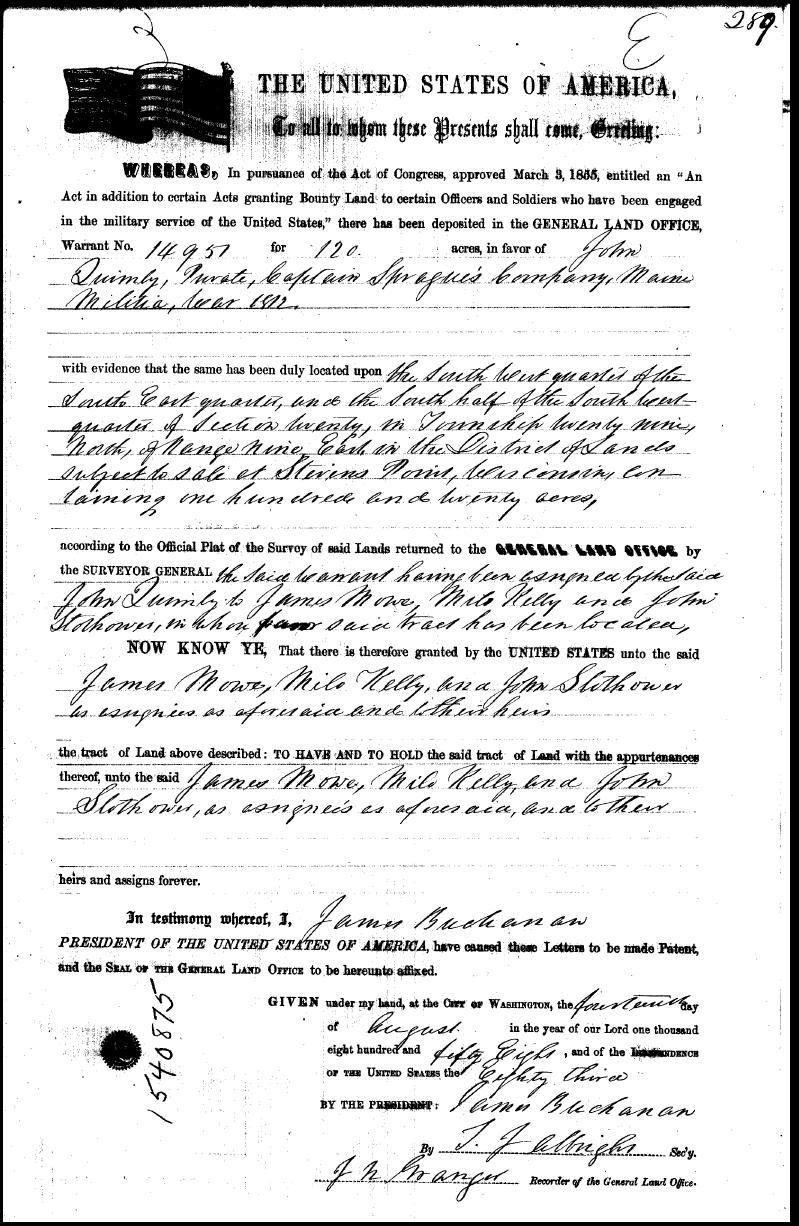 289
2
E
THE UNITED STATES OF AMERICA,
To all to whom these Presents shall come, Greeting:
WHEREAS, In pursuance of the Act of Congress, approved March 3, 1855, entitled an "An
Act in addition to certain Acts granting Bounty Land to certain Officers and Soldiers who have been engaged
in the military service of the United States," there has been deposited in the GENERAL LAND OFFICE,
Warrant No. 14951 for 120. acres, in favor of John
Quimby, Private, Captain Sprague's Company, Maine
Militia, War 1812.
with evidence that the same has been duly located upon the South West quarter of the
South East quarter, and the South half of the South West
quarter of Section twenty, in Township twenty nine,
North, of Range nine, East, in the District of Lands
subject to sale at Stevens Point, Wisconsin, con
taining one hundred and twenty acres,
according to the Official Plat of the Survey of said Lands returned to the GENERAL LAND OFFICE by
the SURVEYOR GENERAL the said Warrant having been assigned by the said
John Quimby to James Mowe, Milo Kelly and John
Slothower, in whose favor said tract has been located,
NOW KNOW YE, That there is therefore granted by the UNITED STATES unto the said
James Mowe, Milo Kelly, and John Slothower
as assignees as aforesaid and to their heirs
the tract of Land above described: TO HAVE AND TO HOLD the said tract of Land with the appurtenances
thereof, unto the said James Mowe, Milo Kelly, and John
Slothower, as assignees as aforesaid, and to their
heirs and assigns forever.
In testimony whereof, I, James Buchanan
PRESIDENT OF THE UNITED STATES OF AMERICA, have caused these Letters to be made Patent,
and the SEAL OF THE GENERAL LAND OFFICE to be hereunto affixed.
GIVEN under my hand, at the CITY OF WASHINGTON, the fourteenth day
of August in the year of our Lord one thousand
eight hundred and fifty Eight, and of the INDEPENDENCE
OF THE UNITED STATES the Eighty third
BY THE PRESIDENT: James Buchanan
By T. J. Albright Sec'y.
J N Granger Recorder of the General Land Office.
1540875